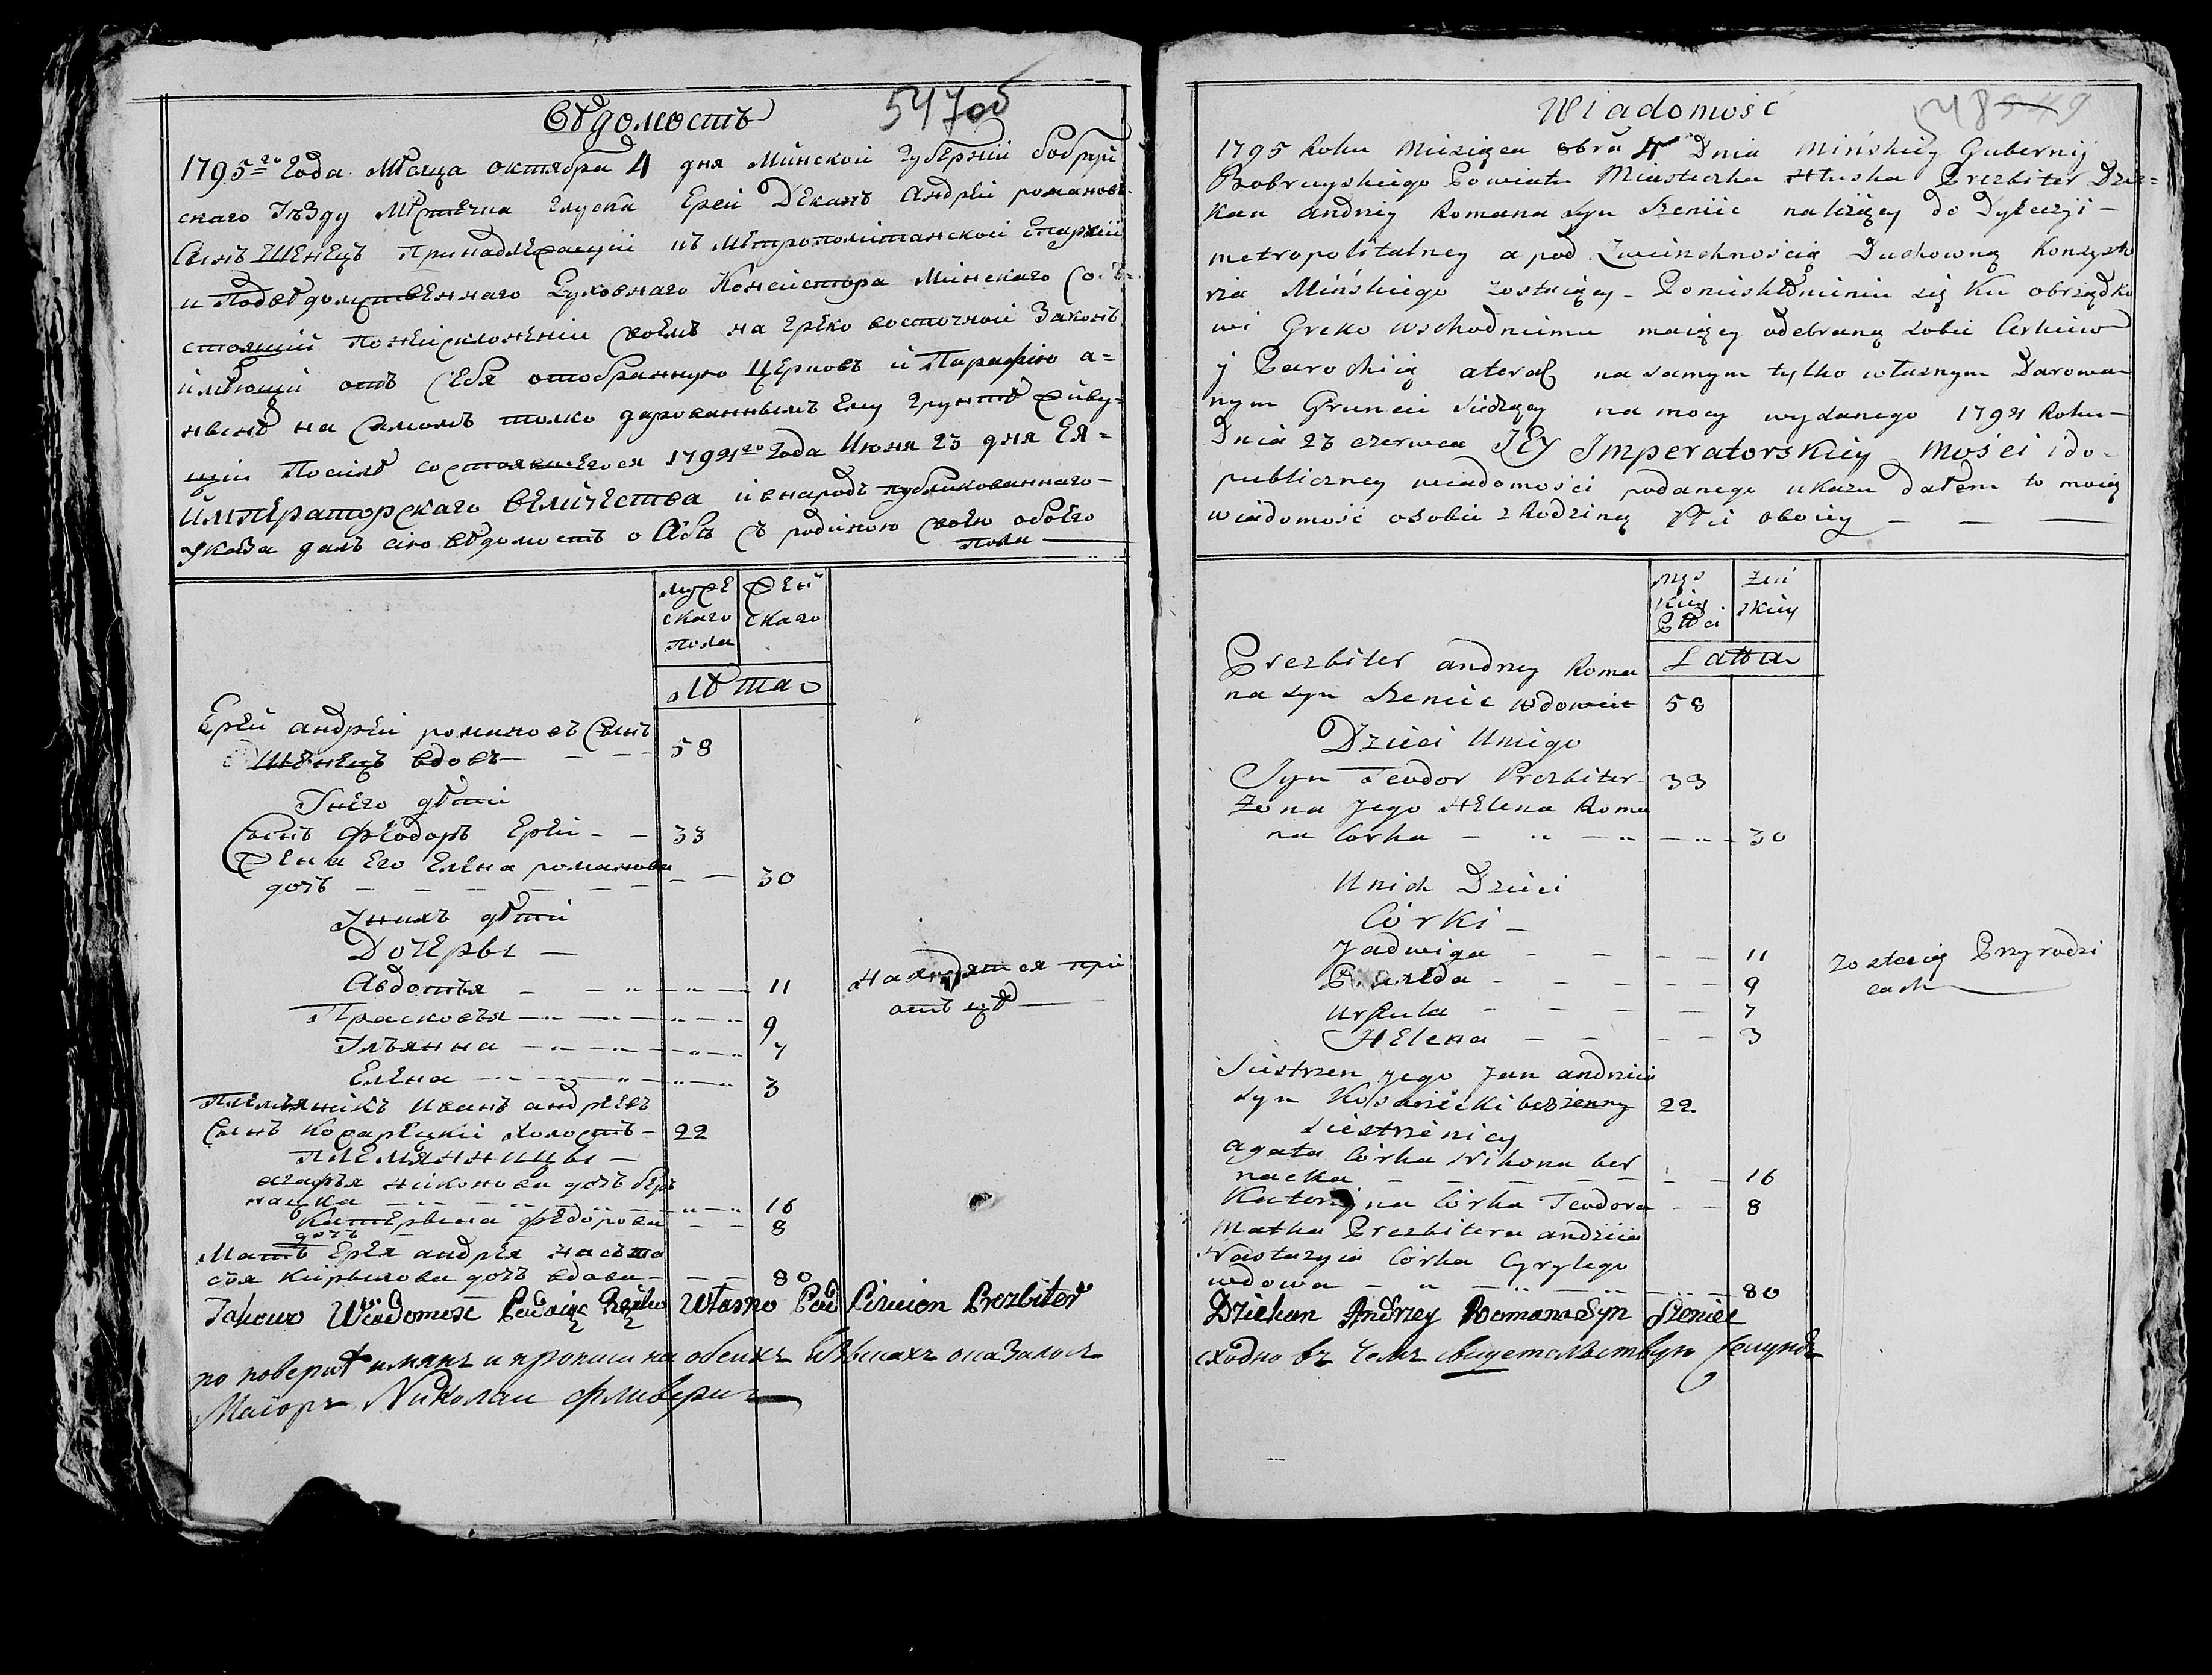 Вѣдомость
547об
1795го Года Мѣсяца октября 4 дня Минской Губерній бобруй
скаго Уѣзду Мѣстечка глуска Ерей Деканъ Андрей романовъ
Сынъ Шенецъ Принадлежащій къ Метрополитанской Епархіи
и Подвѣдомственнаго Духовнаго Консистора Минскаго Со
стоящій По неисклоненіи своемъ на Греко восточной Законъ
имѣющій отъ Себя отобранную Церковъ и Парафію а=
нынѣ на Самомъ толко дарованнымъ Ему Грунтѣ живу=
щій Посилѣ состоявшегося 1794го Года Июня 23 дня ЕЯ=
Императорскаго Величества и внародъ публикованнаго-
Указа далъ сію вѣдомость о Себѣ съ родиною своею обоего
Пола
муже
скаго
пола
жен
скаго
лѣта
Ерей андрей романовъ Сынъ
Шенецъ вдовъ - - - 58
Унего дѣти
Сынъ Феодоръ Ерей - - 33
Жена Его Елена романова
дочъ - - - - - - - 30
Унихъ дѣти
Дочеры -
Авдотья - - - - 11 находятся при
отъцѣ
Прасковья - - - - 9
Ульянна - - - - 7
Елена - - - - 3
Племяникъ Иванъ андреевъ
Сынъ Косарецкій холостъ - 22
племянницы -
агафья никонова дочъ бер
нацка - - - - 16
Катерына федорова - - 8
дочъ
Мать Ерея андрея Насъта
сѣя кирылова дочъ вдова - - - 80
Takowo Wiadomosc własno Prezbiter
по поверке имянъ и прописи на обеихъ оказалося
Маіоръ Николаи
Wiadomość
1795 Roku Miesiąca 8bra 4 Dnia Mińskiey Gubernij
Bobruyskiego Powiatu Miasteczka Hłuska Prezbiter Dzie=
kan andrzey Romana syn Szeniec należący do Dyecezji -
metropolitalney a pod Zwierzchnością Duchowną Konsysto
rza Mińskiego zostaiący - Ponieskłonieniu się Ku obrządko
wi Greko Wschodniemu maiący odebraną sobie Cerkiew
y Parochią ateraz na samym tylko własnym Darowa
nym Gruncie siedzący na mocy wydanego 1794 Roku -
Dnia 23 czerwca JEY Imperatorskiey Mości i do-
publiczney wiadomości podanego ukazu dałem to moię
wiadomość osobie z Rodziną Płci oboiey - - -
męs
kiey
Płci
żeń
skiey
Latta
Prezbiter andrzey Roma
na syn Szeniec wdowiec 58
Dzieci Uniego
Syn Teodor Prezbiter - 33
Żona Jego HElena Roma
na Corka - - - - 30
Unich Dzieci
Córki -
Jadwiga - - - - 11 zostaią Przyrodzi
cach
- - - - 9
Urszula - - - - 7
HElena - - - - 3
Siestrzen Jego Jan andrzeia
syn Kosarzecki bezżenny 22
siestrzenicy
agata Córka Nikona ber
nacka - - - - 16
Katerzyna Córka Teodora - - 8
Matka Prezbitera andrzeia
Nastazyia Córka Cyrylego
wdowa - - - - 80
Dziekan Andrzey Romana Syn Szeniec
сходно въ чемъ свидетелствую Секундъ